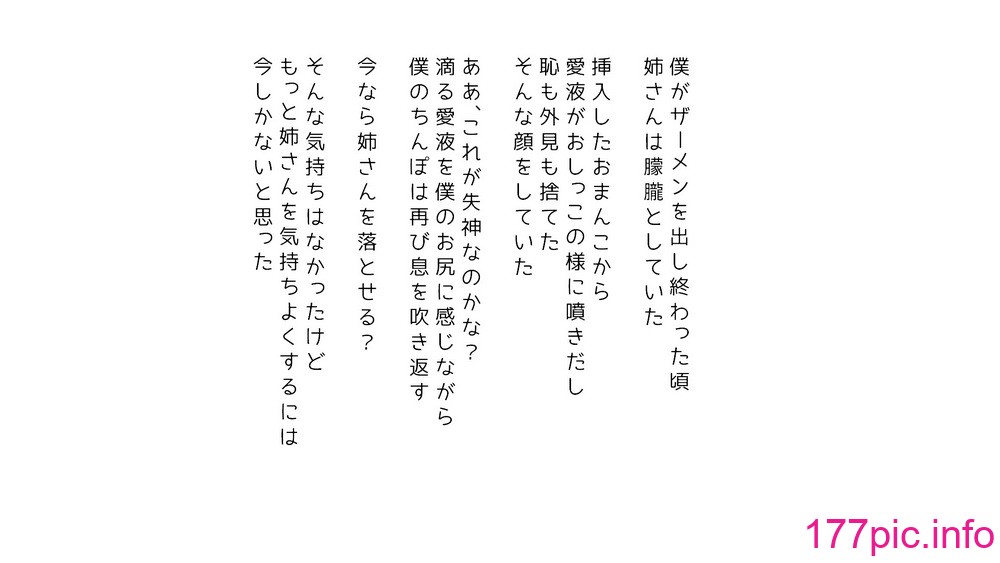 僕がザーメンを出し終わった頃
姉さんは朦朧としていた
挿入したおまんこから
愛液がおしっこの様に噴きだし
恥も外見も捨てた
そんな顔をしていた
ああ、これが失神なのかな？
滴る愛液を僕のお尻に感じながら
僕のちんぽは再び息を吹き返す
今なら姉さんを落とせる？
そんな気持ちはなかったけど
もっと姉さんを気持ちよくするには
今しかないと思った
177pic.info